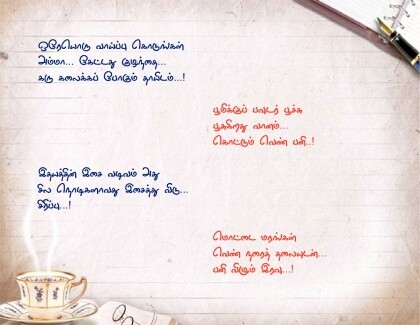 ஒரேயொரு வாய்ப்பு கொடுங்கள்
அம்மா... கேட்டது குழந்தை...
கரு கலைக்கப் போகும் தாயிடம்...!
பூமிக்குப் பவுடர் பூச்சு
பூசுகிறது வானம்...
கொட்டும் வெண் பனி..!
இதயத்தின் இசை வடிவம் அது
சில நொடிகளாவது இசைத்து விடு...
சிரிப்பு...!
மொட்டை மரங்கள்
வெண் நரைத் தலையுடன்...
பனி விழும் இரவு...!